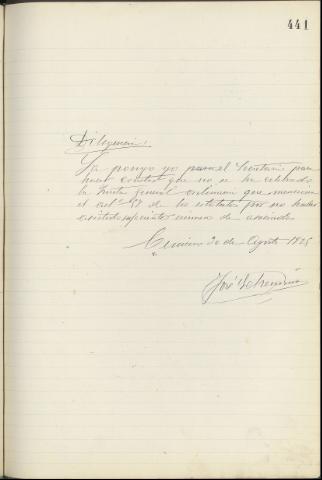 441
Diligencia:
La pongo yo para el Secretario para
hacer constar que no se ha celebrado
la Junta general ordinaria que menciona
el artº 17 de los estatutos por no haber
asistido suficiente número de asociados
20 de Agosto 1925
José